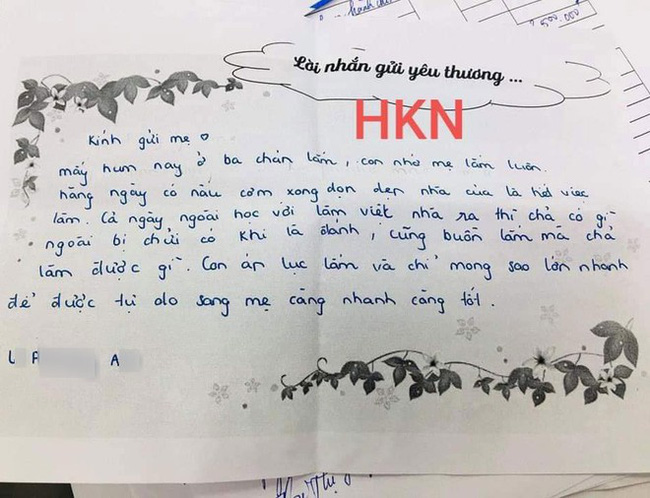 hành
500.000
Lời nhắn gửi yêu thương ...
HKN
Kính gửi mẹ ♡
mấy hum nay ở ba chán lắm, con nhớ mẹ lắm luôn.
hàng ngày có nấu cơm xong dọn dẹp nhà cửa là hết việc
làm. Cả ngày ngoài học với làm việt nhà ra thì chả có gì
ngoài bị chửi có khi là đánh, cũng buồn lắm mà chả
làm được gì. Con áp lực lắm và chỉ mong sao lớn nhanh
để được tự do sang mẹ càng nhanh càng tốt.
L P A